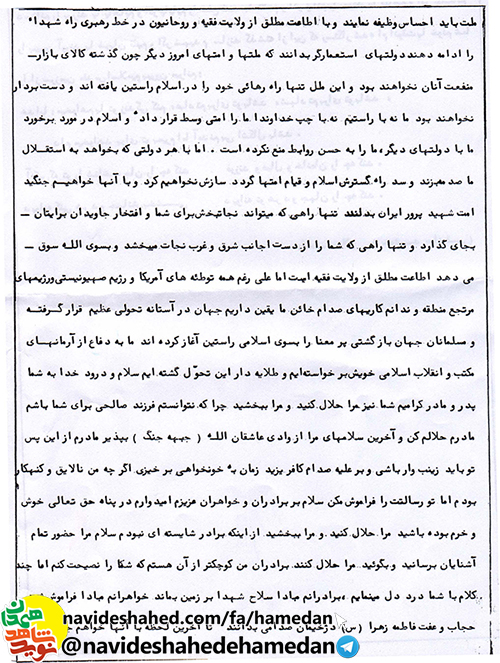 ملت باید احساس وظیفه نمایند و با اطاعت مطلق از ولایت فقیه و روحانیون در خط رهبری راه شهداء
را ادامه دهند دولتهای استعمارگر بدانند که ملتها و امتهای امروز دیگر چون گذشته کالای بازار
منفعت آنان نخواهند بود و این ملل تنها راه رهائی خود را در اسلام راستین یافته اند و دست بردار
نخواهند بود ما نه با راستیم نه با چپ خداوند ما را امتی وسط قرار داده و اسلام در مورد برخورد
ما با دولتهای دیگر ما را به حسن روابط منع نکرده است . اما با هر دولتی که بخواهد به استقلال
ما صدمه بزند و سد راه گسترش اسلام و قیام امتها گردد سازش نخواهیم کرد و با آنها خواهیم جنگید
امت شهید پرور ایران بدانند تنها راهی که میتواند نجاتبخش برای شما و افتخار جاویدان برایتان
بجای گذارد و تنها راهی که شما را از دست اجانب شرق و غرب نجات میبخشد و بسوی اللـه سوق
می دهد اطاعت مطلق از ولایت فقیه است اما علی رغم همه توطئه های آمریکا و رژیم صهیونیستی ورژیمهای
مرتجع منطقه و ندانم کاریهای صدام خائن ما یقین داریم جهان در آستانه تحولی عظیم قرار گرفته
و مسلمانان جهان بازگشتی پر معنا را بسوی اسلامی راستین آغاز کرده اند ما به دفاع از آرمانهای
مکتب و انقلاب اسلامی خویش بر خواسته ایم و طلایه دار این تحول گشته ایم سلام و درود خدا به شما
پدر و مادر گرامیم شما نیز مرا حلال کنید و مرا ببخشید چرا که نتوانستم فرزند صالحی برای شما باشم
مادرم حلالم کن و آخرین سلامهای مرا از وادی عاشقان اللـه ( جبهه جنگ ) بپذیر مادرم از این پس
تو باید زینب وار باشی و بر علیه صدام کافر یزید زمان به خونخواهی بر خیزی اگر چه من نالایق و گنهکار
بودم اما تو رسالتت را فراموش مکن سلام بر برادران و خواهران عزیزم امیدوارم در پناه حق تعالی خوش
و خرم بوده باشید مرا حلال کنید و مرا ببخشید از اینکه برادر شایسته ای نبودم سلام مرا حضور تمام
آشنایان برسانید و بگوئید مرا حلال کنند برادران من کوچکتر از آن هستم که شما را نصیحت کنم اما چند
کلام با شما درد دل مینمایم برادرانم مبادا سلاح شهدا بر زمین بماند خواهرانم مبادا فراموش
حجاب و عفت فاطمه زهرا (س) دژخیمان صدامی بدانند تا آخرین لحظه با آنها خواهم
navideshahed.com/fa/hamedan
@navideshahedehamedan
نوید شاهد همدان